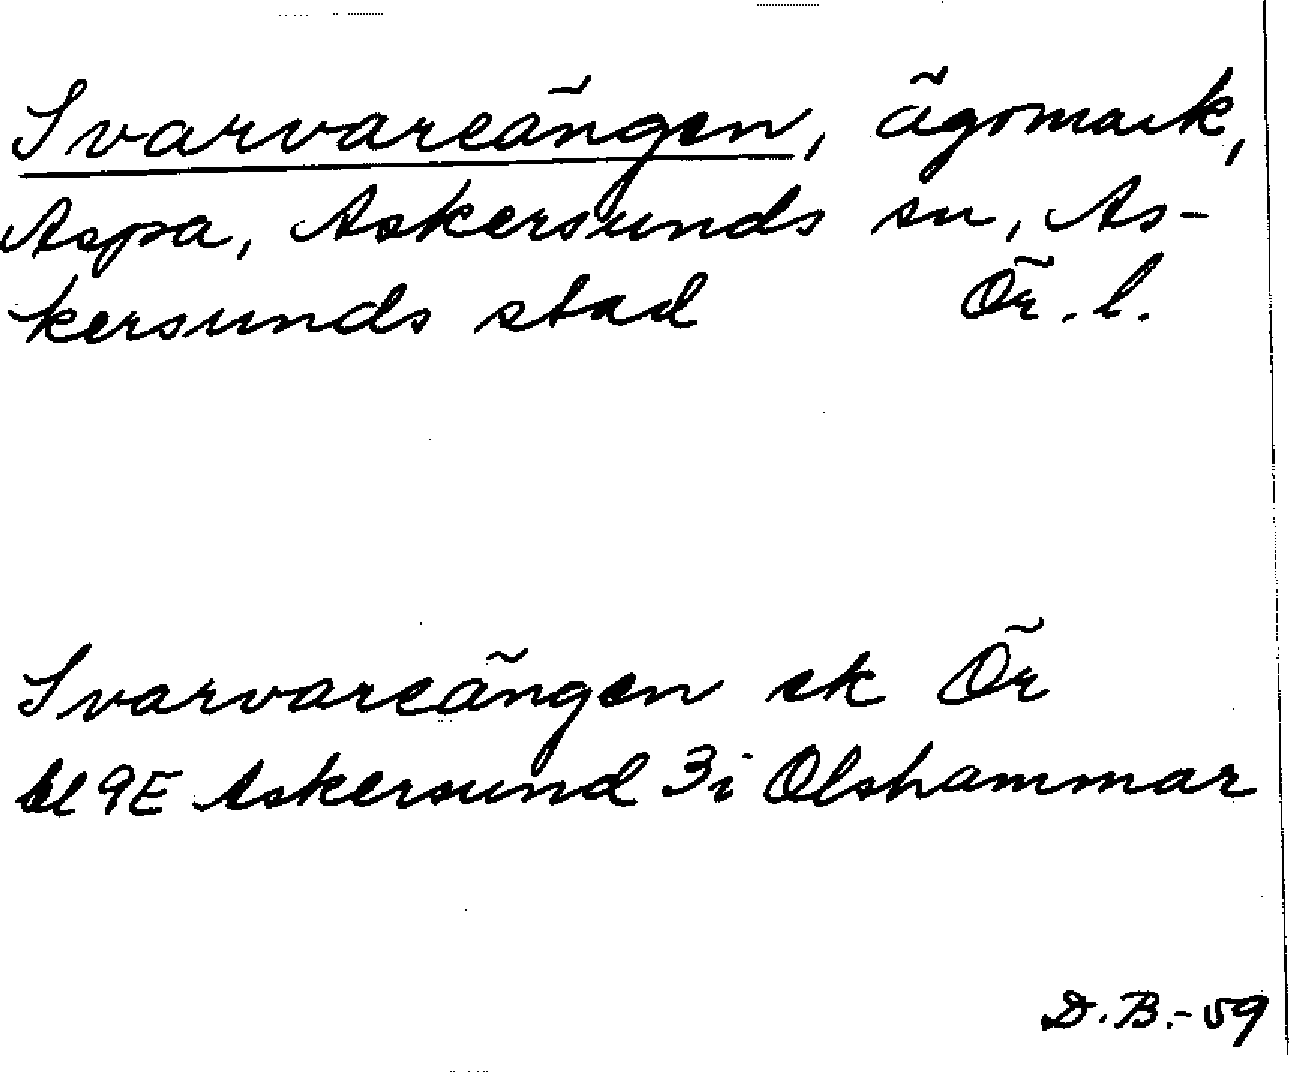 Svarvareängen, ägomark,
Aspa, Askersunds sn, As-
kersunds stad Ör. l.
Svarvareängen ek Ör
bl 9E Askersund 3i Olshammar
D.B.-59